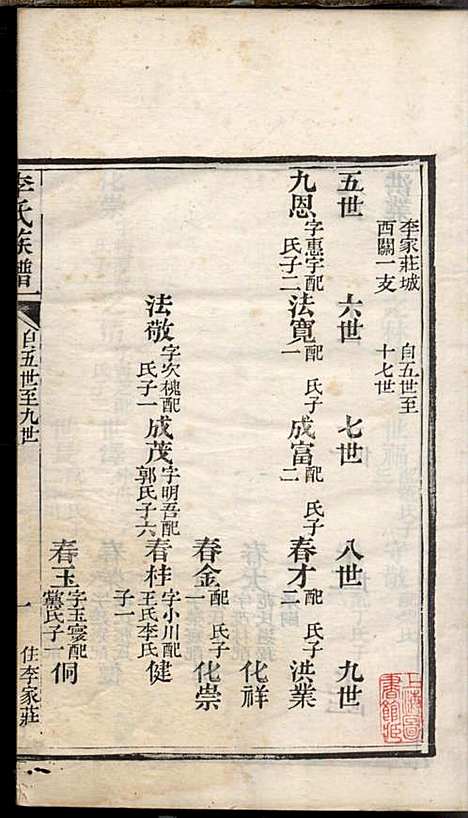 李家莊城西關一支
自五世至十七世
五世 六世 七世 八世 九世
九恩 字惠宇配 氏子二 法寬 配 氏子一 成富 配 氏子二 春才 配 氏子二 洪業
化祥
春金 配 氏子一 化崇
法敬 字次槐配 氏子一 成茂 字明吾配郭氏子六 春桂 字小川配王氏李氏子一 健
春玉 字玉寰配黨氏子一 侗
李氏族譜
自五世至九世
一
住李家莊
上海圖書館藏